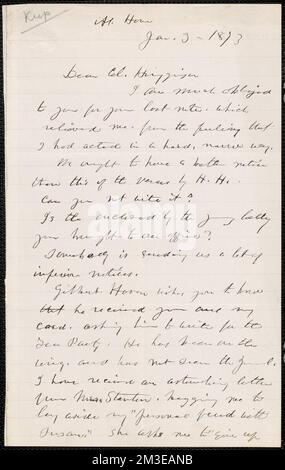 Keep
At Home
Jan. 3 - 1873
Dear Col. Higginson
I am much obliged
to you for your last note, which
relieved me from the feeling that
I had acted in a hard, narrow way.
We ought to have a better notice
than this of the Verses by H. H.
Can you not write it?
Is the enclosed by the young lady
you brought to our office?
Somebody is sending us a lot of
inferior notices.
Gilbert Haven wishes you to know
that he received your and my
card, asking him to write for the
Tea Party. He has been on the
wing, and has not seen the Journal.
I have received an astonishing letter
from Mrs Stanton, begging me to
lay aside my "personal feud with
Susan." She asks me to "give up
alamy
Image ID: 2M3EANB
www.alamy.com